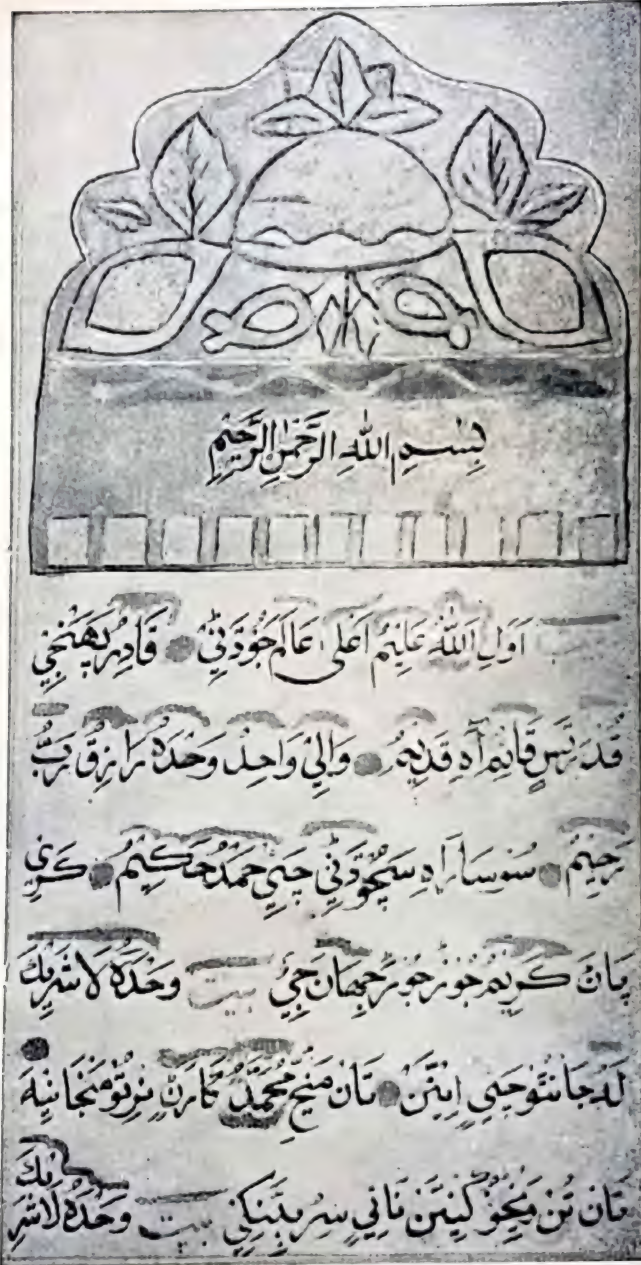 بِسْمِ اللهِ الرَّحْمٰنِ الرَّحِيْمِ
اَوَلِ اَللهُ عَلِيْمُ اَعْلٰى عَالَمَ جُوْدَڻِيْ قَادِرُ پَهَنْجِيْ
قُدْرَتَسِ قَائِمِ آهِ قَدِيْمُ وَالِيْ وَاحِدُ وَحْدَهٗ رَازِقُ رَبُّ
رَحِيْمُ سُو سَارَاهِ سَچُوْدَڻِيْ چَئِيْ حَمْدُ حَكِيْمُ كَرِيْ
پَانَ كَرِيْمُ جُوْرَ جُوْرَ جِهَانَ جِيْ بيت وَحْدَهٗ لَاشَرِيْكَ
لَهُ جَانتُوْ چَئِيْ اِيْئَن تَان مَنج مُحَمَّدُ كَارَڻِ نِرتُوْ مَنْجَانِيْهَ
تَان تُن وَنْجُوْ كَيْئَن نَائِيْ سِرُ بِيَنكِيْ بيت وَحْدَهٗ لَاشَرِيْكَ